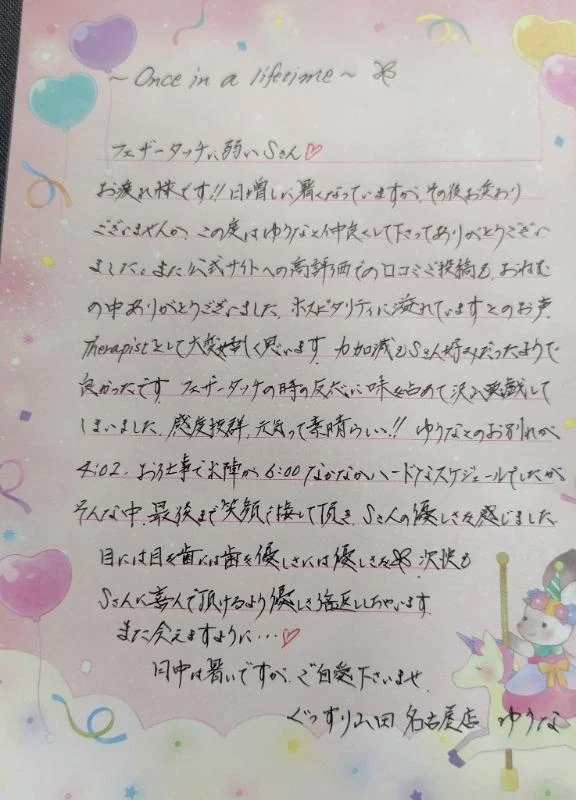 ～Once in a lifetime～
フェザータッチに弱いSさん♡
お疲れ様です!! 日増しに暑くなっていますが、その後お変わり
ございませんか、この度はゆうなと仲良くして下さってありがとうござい
ました。また公式サイトへの高評価での口コミご投稿も、おねむ
の中ありがとうございました、ホスピタリティに溢れていますとのお声
Therapistとして大変嬉しく思います 力加減もSさん好みだったようで
良かったです フェザータッチの時の反応に味を占めて沢山悪戯して
しまいました、感度抜群、元気って素晴らしい!! ゆうなとのお別れが
4:02、お仕事で出陣が6:00 なかなかハードなスケジュールでしたが
そんな中、最後まで笑顔で接して頂き、Sさんの優しさを感じました、
目には目を歯には歯を優しさには優しさを 次快も
Sさんに喜んで頂けるよう優しさ倍返ししちゃいます
また会えますように…♡
日中は暑いですが、ご自愛下さいませ、
ぐっすり山田 名古屋店 ゆうな